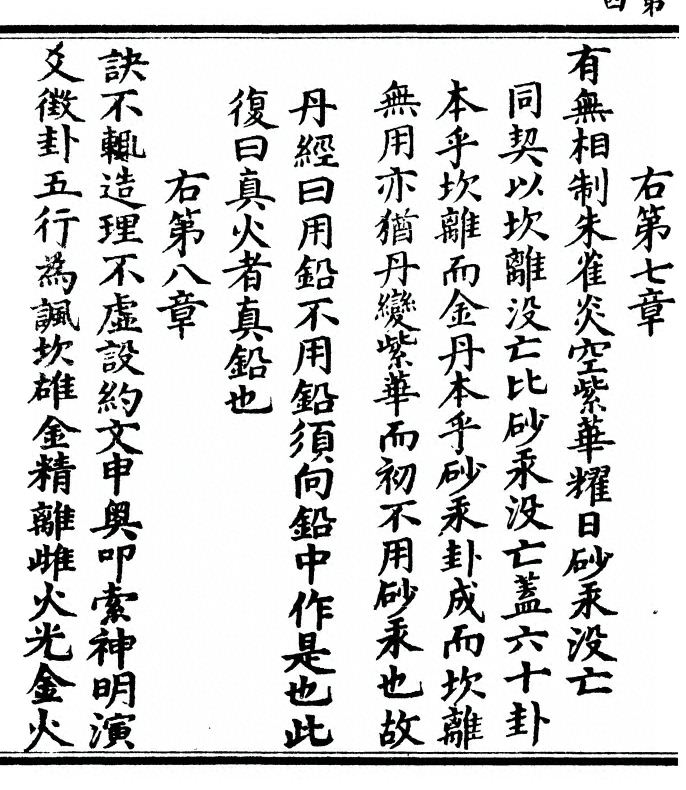 第四
右第七章
有無相制朱雀炎空紫華耀日砂汞没亡
同契以坎離没亡比砂汞没亡蓋六十卦
本乎坎離而金丹本乎砂汞卦成而坎離
無用亦猶丹變紫華而初不用砂汞也故
丹經曰用鉛不用鉛須向鉛中作是也此
復曰真火者真鉛也
右第八章
訣不輒造理不虛設約文申奥叩索神明演
爻徵卦五行為諷坎雄金精離雌火光金火